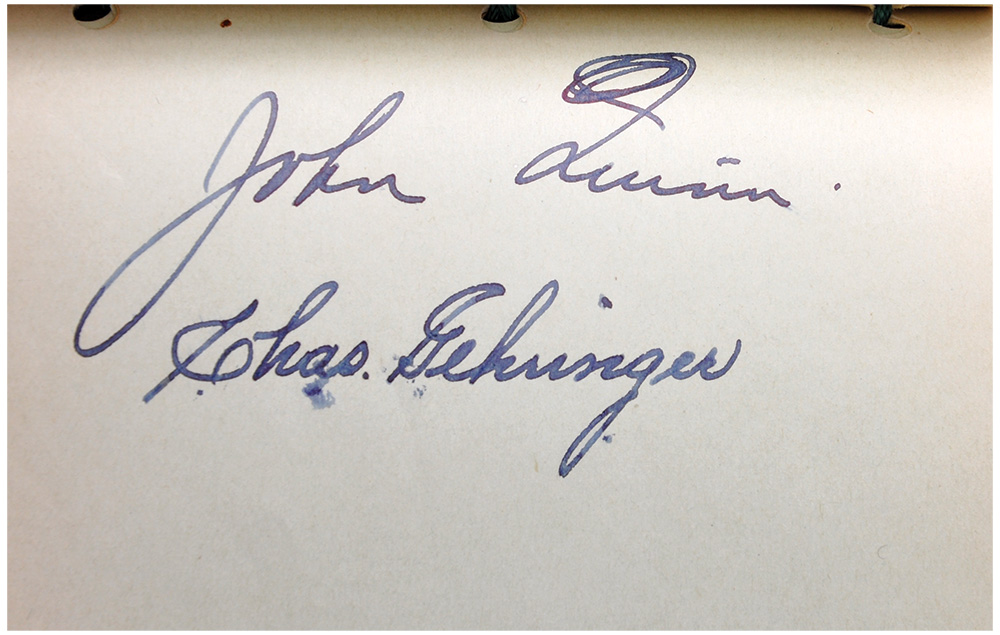 John Quinn.
Chas. Gehringer